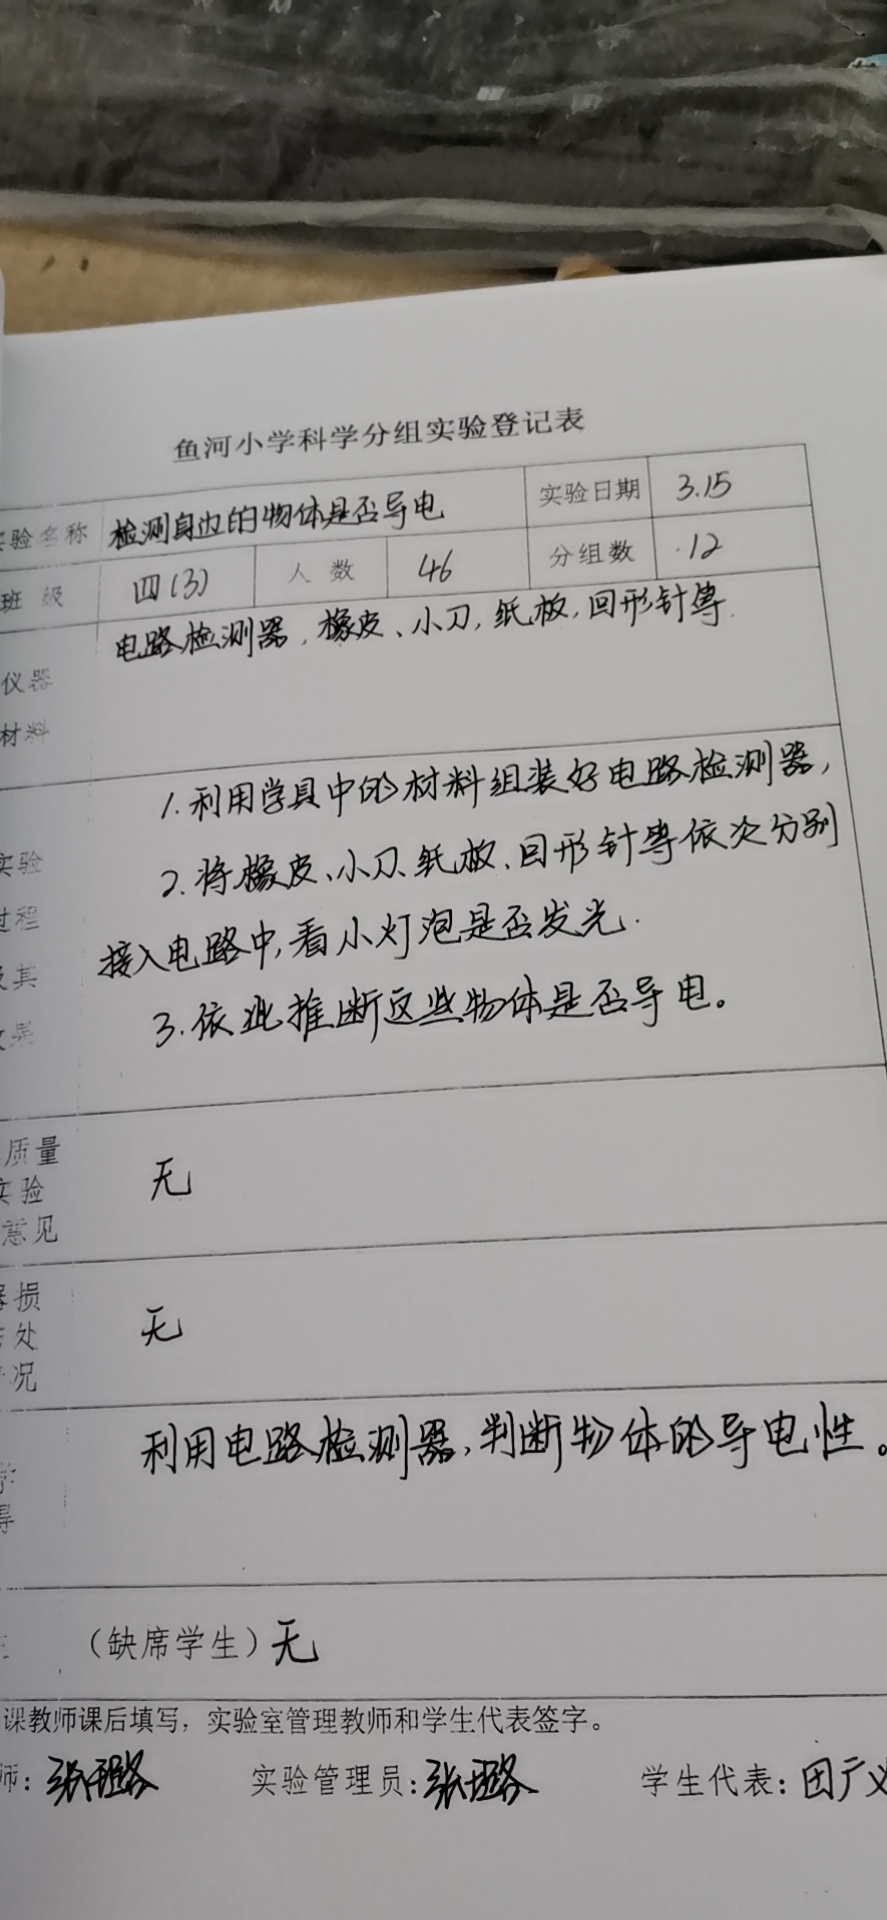 鱼河小学科学分组实验登记表
实验名称 检测身边的物体是否导电 实验日期 3.15
班级 四(3) 人数 46 分组数 12
仪器 电路检测器, 橡皮、小刀, 纸板, 回形针等
材料
1. 利用学具中的材料组装好电路检测器,
实验 2. 将橡皮、小刀、纸板、回形针等依次分别
过程 接入电路中, 看小灯泡是否发光.
及其 3. 依此推断这些物体是否导电。
效果
质量
实验 无
意见
损
处 无
况
利用电路检测器, 判断物体的导电性。
学
得
(缺席学生) 无
课教师课后填写, 实验室管理教师和学生代表签字。
师: 张璐 实验管理员: 张璐 学生代表: 田广义